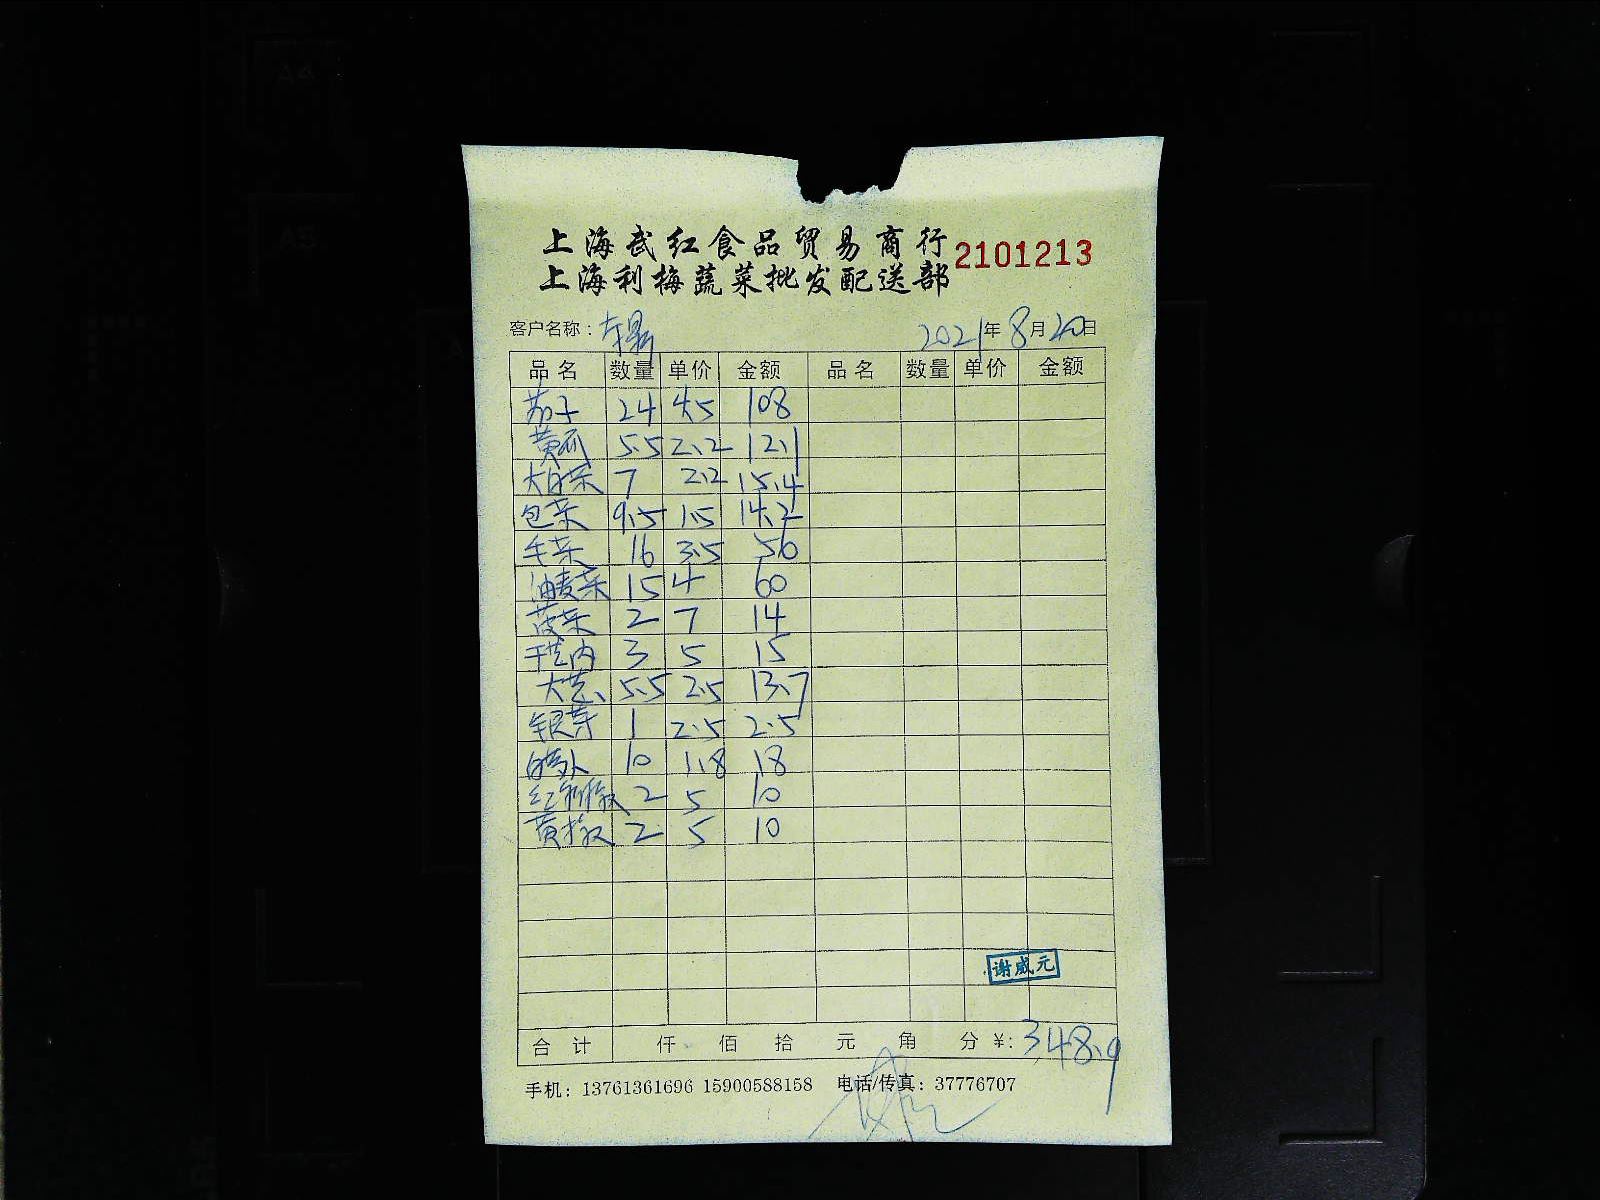 上海武红食品贸易商行
2101213
上海利梅蔬菜批发配送部
客户名称： 2021年8月20日
品名 数量 单价 金额 品名 数量 单价 金额
茄子 24 4.5 108
黄瓜 5.5 2.2 12.1
大白菜 7 2.2 15.4
包菜 9.5 1.5 14.2
毛菜 16 3.5 56
油麦菜 15 4 60
菠菜 2 7 14
3 5 15
5.5 2.5 13.7
银芽 1 2.5 2.5
白萝卜 10 1.8 18
红椒 2 5 10
黄椒 2 5 10
谢威元
合计 仟 佰 拾 元 角 分 ¥: 348.9
手机：13761361696 15900588158 电话/传真：37776707